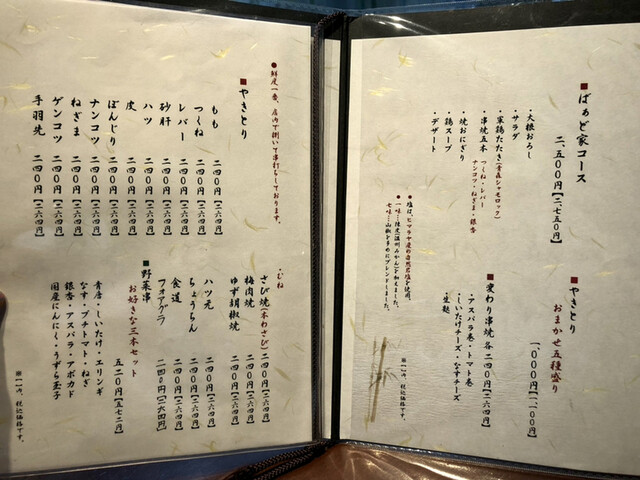 ■ばぁど家コース
二、五〇〇円【二、七五〇円】
・大根おろし
・サラダ
・軍鶏たたき(青森シャモロック)
・串焼五本 つくね・レバー
ナンコツ・ねぎま・銀杏
・焼おにぎり
・鶏スープ
・デザート
●塩は、ヒマラヤ産の自然岩塩を使用。
●一味…陳皮(温州みかん)を加えました。
七味…山椒を多めにブレンドしました。
■やきとり
おまかせ五種盛り
一、〇〇〇円【一、一〇〇円】
■変わり串焼 各二四〇円【二六四円】
・アスパラ巻・トマト巻
・しいたけチーズ・なすチーズ
・生麩
※一内、税込価格です。
●鮮度一番、店内で捌いて串打ちしております。
■やきとり
もも 二四〇円【二六四円】
つくね 二四〇円【二六四円】
レバー 二四〇円【二六四円】
砂肝 二四〇円【二六四円】
ハツ 二四〇円【二六四円】
皮 二四〇円【二六四円】
ぼんじり 二四〇円【二六四円】
ナンコツ 二四〇円【二六四円】
ねぎま 二四〇円【二六四円】
ゲンコツ 二四〇円【二六四円】
手羽先 二四〇円【二六四円】
さび焼(本わさび) 二四〇円【二六四円】
梅肉焼 二四〇円【二六四円】
ゆず胡椒焼 二四〇円【二六四円】
ハツ元 二四〇円【二六四円】
ちょうちん 二四〇円【二六四円】
食道 二四〇円【二六四円】
フォアグラ 二四〇円【二六四円】
■野菜串
お好きな三本セット
五二〇円【五七二円】
青唐・しいたけ・エリンギ
なす・プチトマト・ねぎ
銀杏・アスパラ・アボカド
国産にんにく・うずら玉子
※一内、税込価格です。